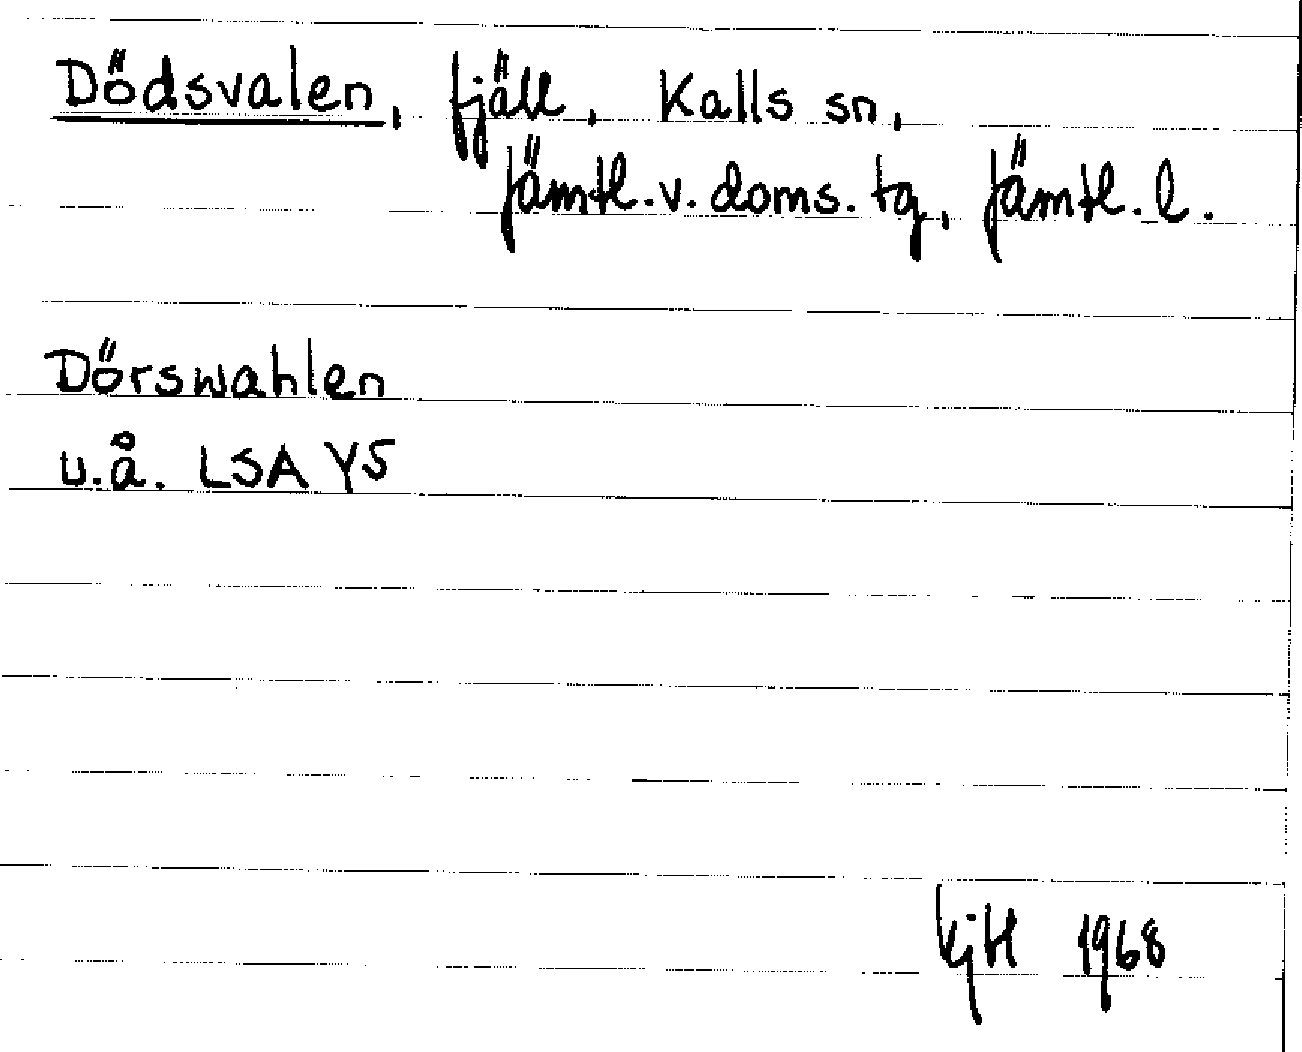 Dödsvalen, fjäll, Kalls sn,
Jämtl. v. doms. tg, Jämtl. l.
Dörswahlen
u.å. LSA Y5
KjH 1968